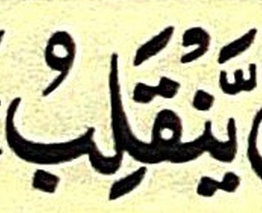 يَّنْقَلِبُ